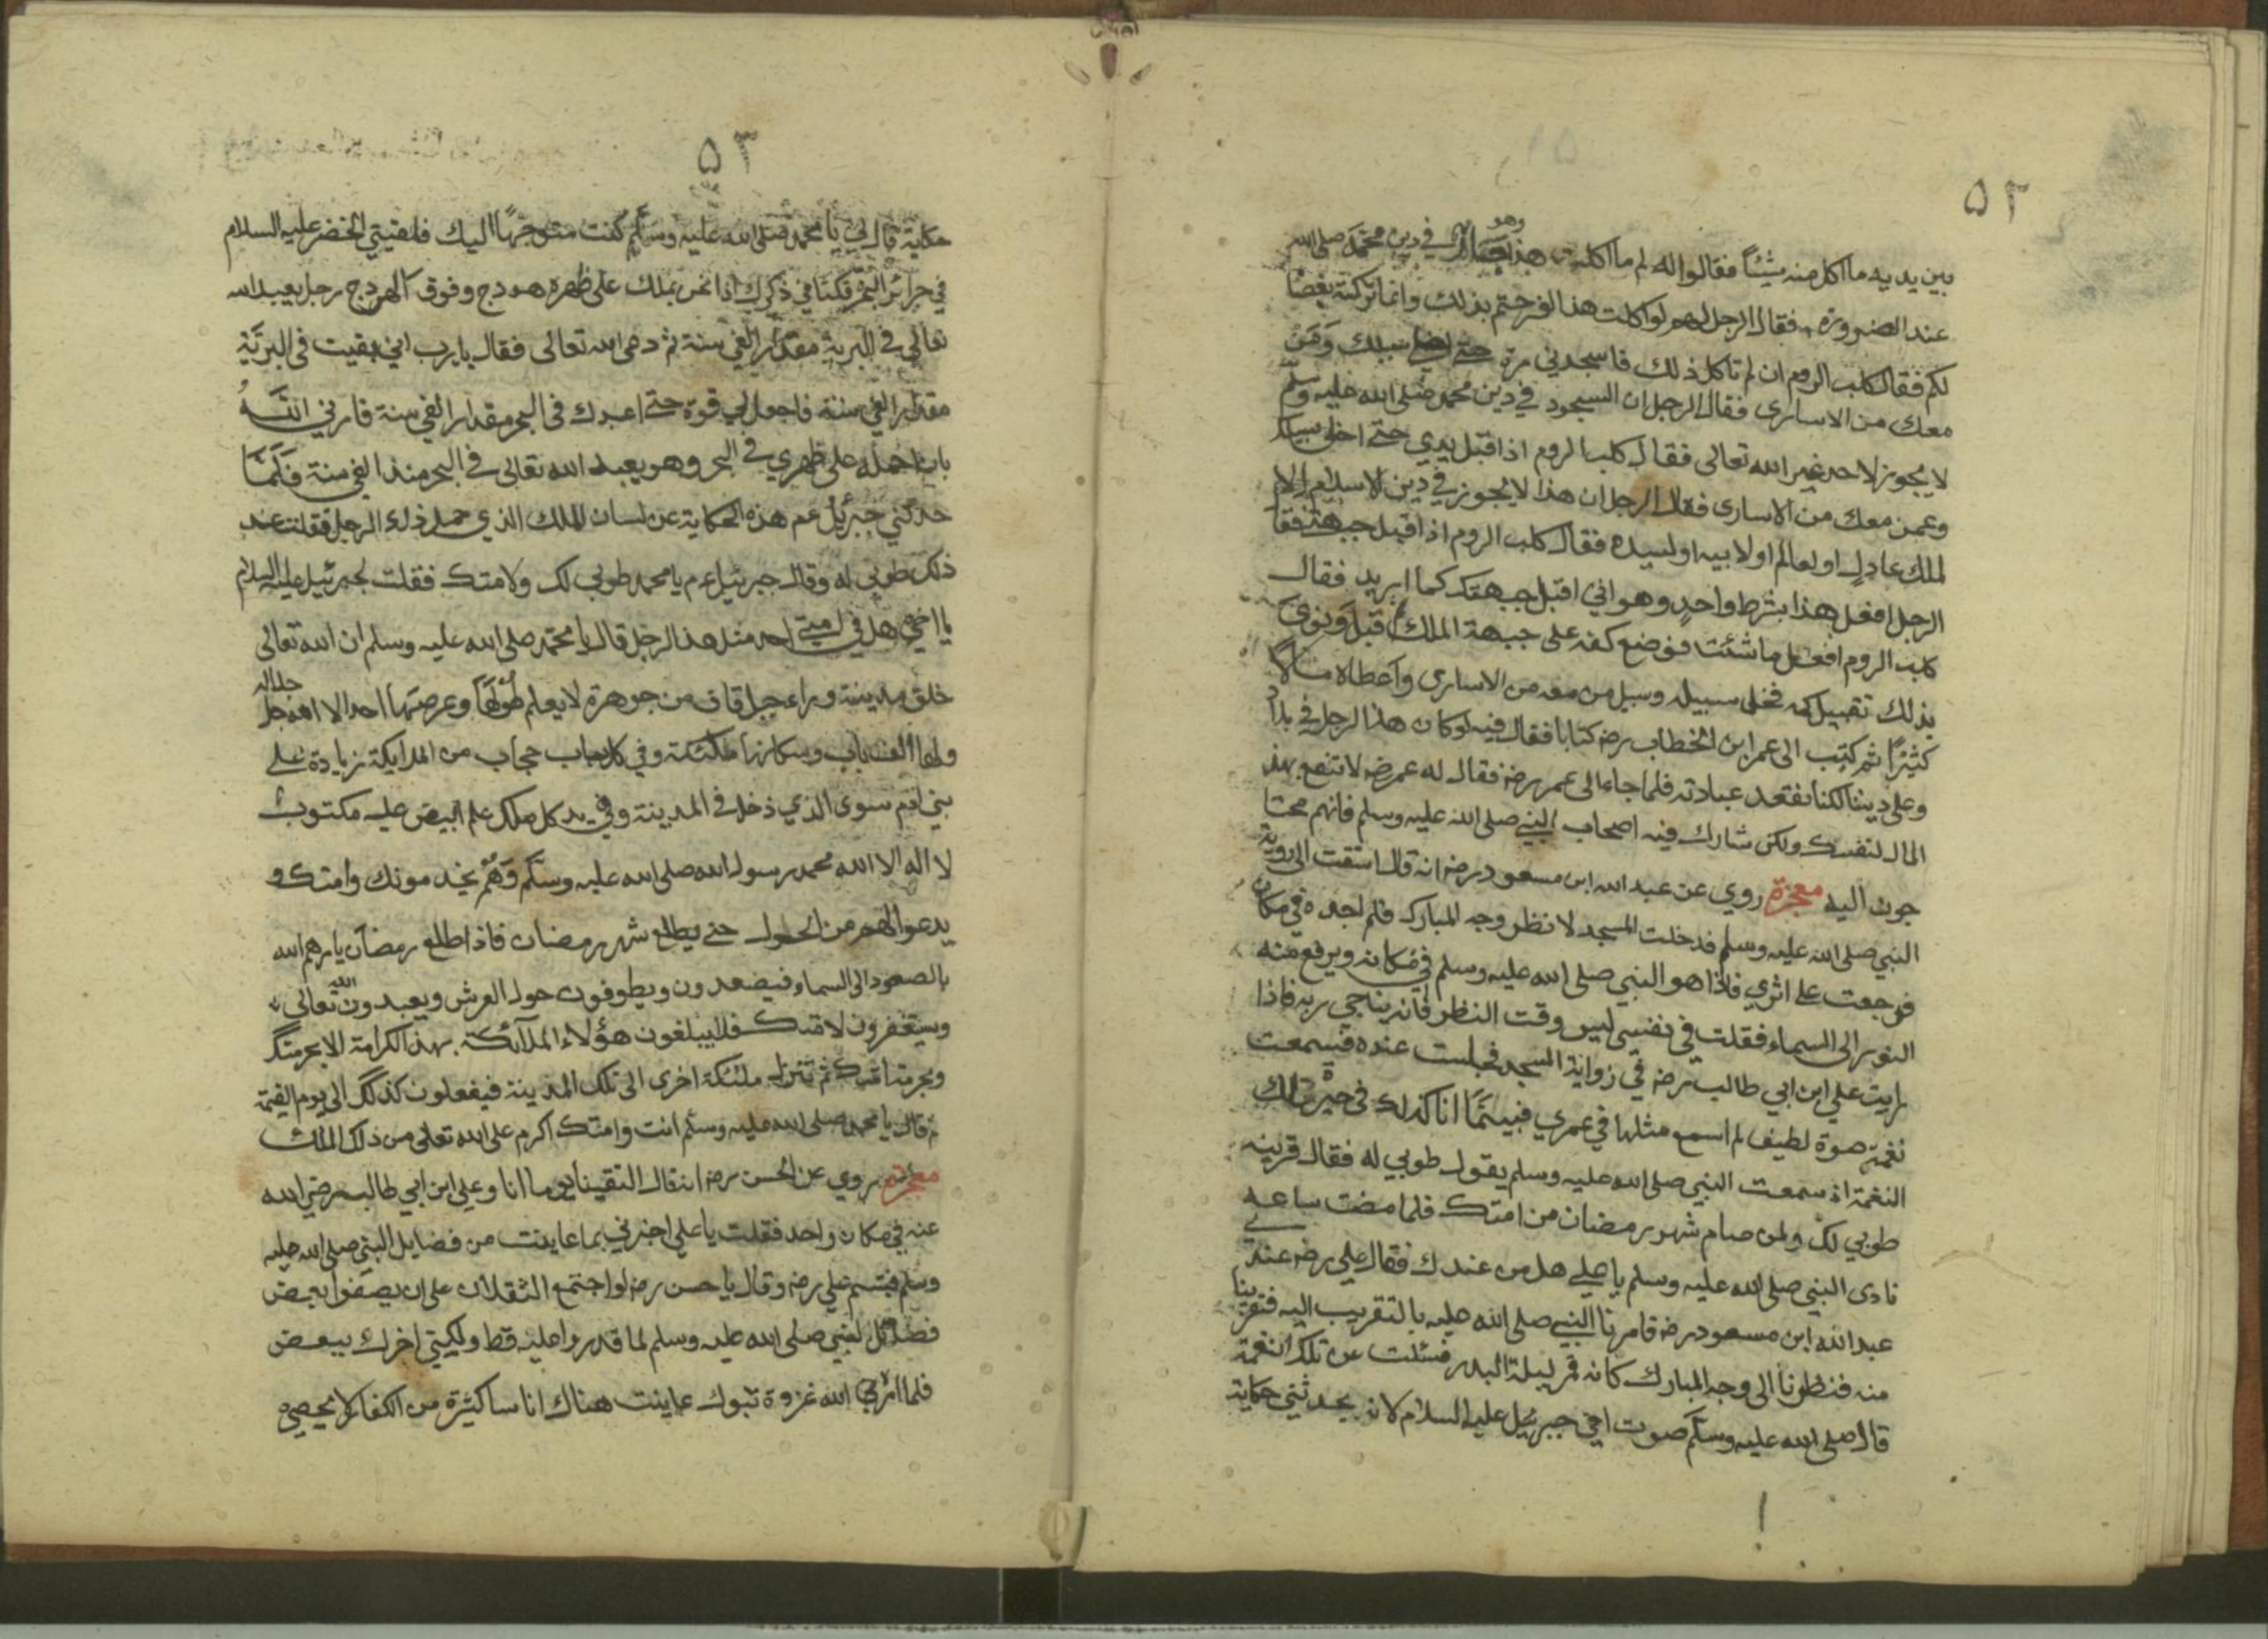 ٥٢
بين يديه ما اكل منه شيئاً فقالوا له لم ما اكلت هذا وهو جائز في دين محمّد صلى الله
عند الضرورة فقال الرجل لهم لو اكلت هذا لفرحتم بذلك وانما تركته بغضا
لكم فقال كلب الروم ان لم تاكل ذلك فاسجدني مرة حتى اخلي سبيلك وممن
معك من الاسارى فقال الرجل ان السجود في دين محمد صلى الله عليه وسلم
لا يجوز لاحد غير الله تعالى فقال كلب الروم اذا قبل يدي حتى اخلي سبيلك
وعمن معك من الاسارى فقال الرجل ان هذا لا يجوز في دين الاسلام الا
لملك عادلٍ او لعالم او لابيه او لسيده فقال كلب الروم اذا اقبل جبهتي فقا
الرجل افعل هذا بشرط واحدٍ وهو اني اقبل جبهتك كما اريد فقال
كلب الروم افعل ما شئت فوضع كفه على جبهة الملك قبل ونوى
بذلك تقبيل كفه فخلى سبيله وسبيل من معه من الاسارى واعطاه مالاً
كثيرًا ثم كتب الى عمر ابن الخطاب رضه كتابا فقال فيه لو كان هذا الرجل في بلاد
وعلى ديننا لكنا نعتقد عبادته فلما جاء الى عمر رضه فقال له عمر رضه لا تنفع بهذ
المال لنفسك ولكن شارك فيه اصحاب النبي صلى الله عليه وسلم فانهم محتا
جون اليه معجزة روي عن عبد الله ابن مسعود رضه انه قال اشتقت الى روية
النبي صلى الله عليه وسلم فدخلت المسجد لانظر وجه المبارك فلم اجده في مكان
فرجعت على اثري فاذا هو النبي صلى الله عليه وسلم في مكانه ويرفع منه
النور الى السماء فقلت في نفسي ليس وقت النظر فانه يناجي ربه فاذا
رايت علي ابن ابي طالب رضه في زواية المسجد فجلست عنده فسمعت
نغمة صوة لطيف لم اسمع مثلها في عمري فبينما انا كذلك في حيرة تلك
النغمة اذ سمعت النبي صلى الله عليه وسلم يقول طوبى له فقال قرينه
طوبى لك ولمن صام شهر رمضان من امتك فلما مضت ساعة
نادى النبي صلى الله عليه وسلم يا علي هل من عندك فقال علي رضه عندي
عبد الله ابن مسعود رضه فامرنا النبي صلى الله عليه بالتقريب اليه فتقربنا
منه فنظرنا الى وجه المبارك كانه قمر ليلة البدر فسئلت عن تلك النغمة
قال صلى الله عليه وسلّم صوت اخي جبرئيل عليه السلام لانه يحدثني حكاية
٥٣
حكاية قال لي يا محمد صلى الله عليه وسلم كنت متوجهًا اليك فلقيتي الخضر عليه السلام
في جزائر البحر فكنا في ذكرك اذا نحن بملك على ظهره هودج وفوق الهودج رجل يعبد الله
تعالى في البرية مقدار الفي سنة ثم دعى الله تعالى فقال يا رب اني بقيت في البريّة
مقدار الفي سنة فاجعل لي قوة حتى اعبدك في البحر مقدار الفي سنة فارني اللهُ
بان احمله على ظهري في البحر وهو يعبد الله تعالى في البحر منذ الفي سنة فلمّا
حدثني جبرئيل عم هذه الحكاية عن لسان الملك الذي حمل ذلك الرجل فقلت عند
ذلك طوبى له وقال جبرئيل عم يا محمد طوبى لك ولامتك فقلت لجبرئيل عليه السلام
يا اخي هل في امتي احد مثل هذ الرجل قال يا محمد صلى الله عليه وسلم ان الله تعالى
خلق مدينة وراء جبل قاف من جوهرة لا يعلم طولها وعرضها احد الا الله جل جلاله
ولها الف باب وسكانها ملئكة وفي كل باب حجاب من الملايكة زيادة على
بني ادم سوى الذي دخل في المدينة وفي يد كل ملك علم ابيض عليه مكتوب
لا اله الا الله محمد رسول الله صلى الله عليه وسلّم وهم يخدمونك وامتك و
يدعوا لهم من الحول حتى يطلع شهر رمضان فاذا طلع رمضان يارهم الله
بالصعود الى السماء فيضعدون ويطوفون حول العرش ويعبدون الله تعالى
ويستغفرون لامتك فلا يبلغون هؤلاء الملآئكة بهذ الكرامة الا بحرمتك
وبحرمة امتك ثم تنزل ملئكة اخرى الى تلك المدينة فيفعلون كذلك الى يوم القيمة
ثم قال يا محمد صلى الله عليه وسلم انت وامتك اكرم على الله تعالى من ذلك الملك
معجزة روي عن الحسن رضه انه قال التقينا يوما انا وعلي ابن ابي طالب رضي الله
عنه في مكان واحد فقلت يا علي اخبرني بما عاينت من فضايل النبي صلى الله عليه
وسلم فتبسم علي رضه وقال يا حسن رضه لو اجتمع الثقلان على ان يصفوا بعض
فضائل النبي صلى الله عليه وسلم لما قدروا عليه قط ولكيني اخبرك ببعض
فلما امرني الله غزوة تبوك عاينت هناك اناسا كثيرة من الكفار لا يحصي